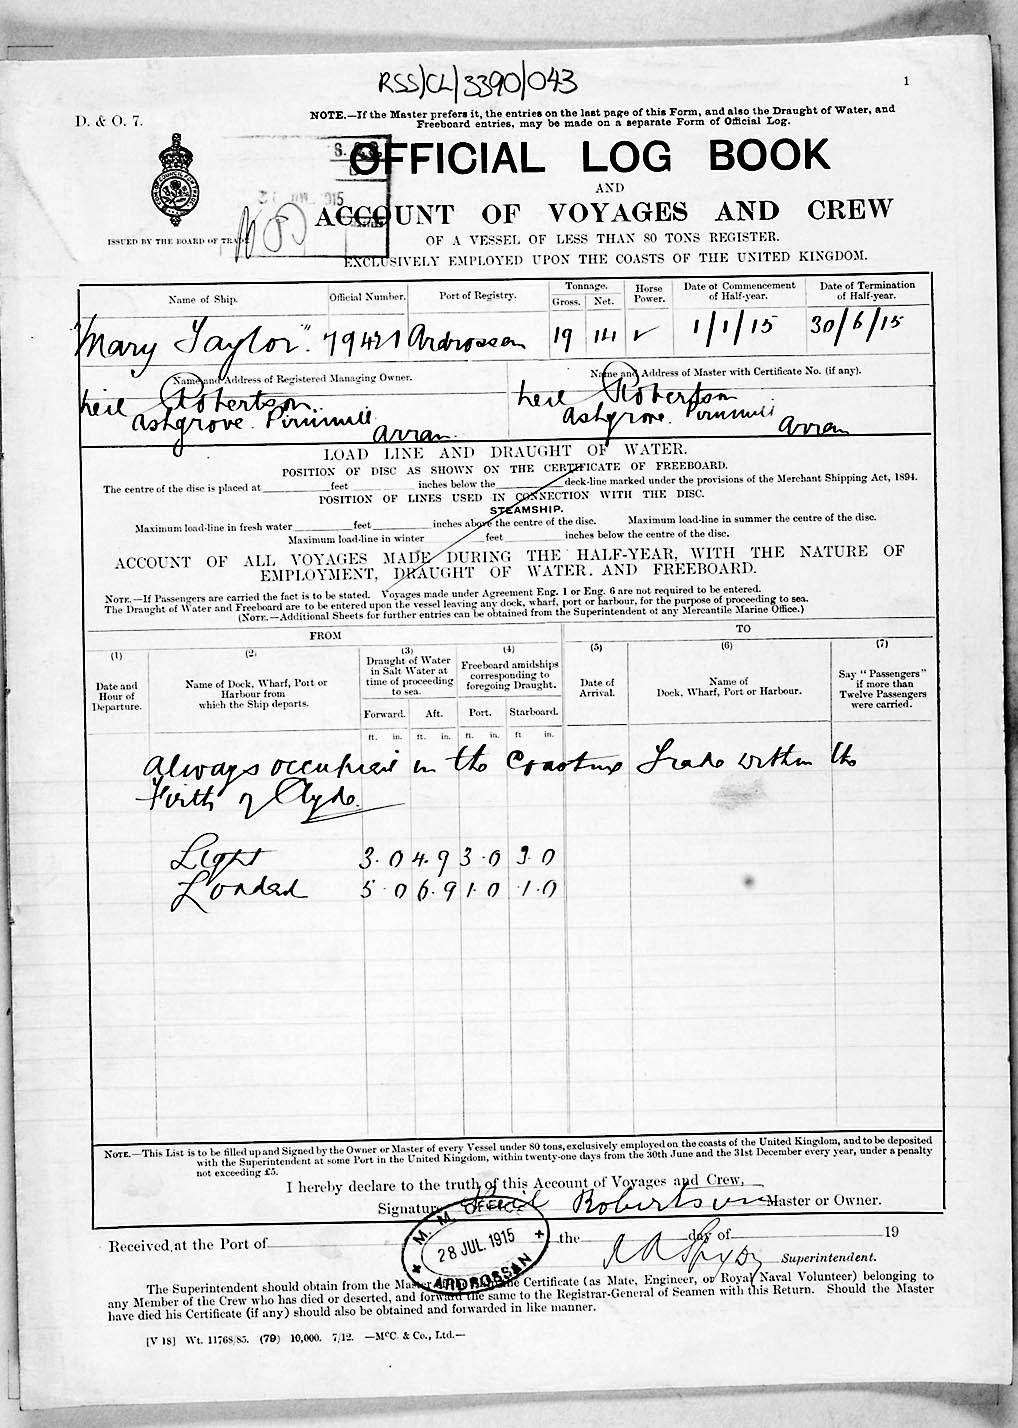 RSS/CL/3390/043
1
D. & O. 7.
NOTE.—If the Master prefers it, the entries on the last page of this Form, and also the Draught of Water, and
Freeboard entries, may be made on a separate Form of Official Log.
OFFICIAL LOG BOOK
AND
ACCOUNT OF VOYAGES AND CREW
ISSUED BY THE BOARD OF TRADE
OF A VESSEL OF LESS THAN 80 TONS REGISTER.
EXCLUSIVELY EMPLOYED UPON THE COASTS OF THE UNITED KINGDOM.
Name of Ship. Official Number. Port of Registry. Tonnage. Gross. Net. Horse Power. Date of Commencement of Half-year. Date of Termination of Half-year.
"Mary Taylor" 79421 Ardrossan 19 14 1/1/15 30/6/15
Name and Address of Registered Managing Owner. Name and Address of Master with Certificate No. (if any).
Neil Robertson Neil Robertson
Ashgrove. Pirnmill Ashgrove. Pirnmill
Arran Arran
LOAD LINE AND DRAUGHT OF WATER.
POSITION OF DISC AS SHOWN ON THE CERTIFICATE OF FREEBOARD.
The centre of the disc is placed at feet inches below the deck-line marked under the provisions of the Merchant Shipping Act, 1894.
POSITION OF LINES USED IN CONNECTION WITH THE DISC.
STEAMSHIP.
Maximum load-line in fresh water feet inches above the centre of the disc. Maximum load-line in summer the centre of the disc.
Maximum load-line in winter feet inches below the centre of the disc.
ACCOUNT OF ALL VOYAGES MADE DURING THE HALF-YEAR, WITH THE NATURE OF
EMPLOYMENT, DRAUGHT OF WATER, AND FREEBOARD.
NOTE.—If Passengers are carried the fact is to be stated. Voyages made under Agreement Eng. 1 or Eng. 6 are not required to be entered.
The Draught of Water and Freeboard are to be entered upon the vessel leaving any dock, wharf, port or harbour, for the purpose of proceeding to sea.
(NOTE.—Additional Sheets for further entries can be obtained from the Superintendent of any Mercantile Marine Office.)
FROM TO
(1) (2) (3) (4) (5) (6) (7)
Date and Hour of Departure. Name of Dock, Wharf, Port or Harbour from which the Ship departs. Draught of Water in Salt Water at time of proceeding to sea. Freeboard amidships corresponding to foregoing Draught. Date of Arrival. Name of Dock, Wharf, Port or Harbour. Say "Passengers" if more than Twelve Passengers were carried.
Forward. Aft. Port. Starboard.
ft. in. ft. in. ft. in. ft in.
Always occupied in the Coasting Trade within the
Firth of Clyde.
Light 3.0 4.9 3.0 3.0
Loaded 5.0 6.9 1.0 1.0
NOTE.—This List is to be filled up and Signed by the Owner or Master of every Vessel under 80 tons, exclusively employed on the coasts of the United Kingdom, and to be deposited
with the Superintendent at some Port in the United Kingdom, within twenty-one days from the 30th June and the 31st December every year, under a penalty
not exceeding £5.
I hereby declare to the truth of this Account of Voyages and Crew,
Signature Neil Robertson Master or Owner.
M. M. OFFICE
28 JUL 1915
ARDROSSAN
Received at the Port of the day of 19
Superintendent.
The Superintendent should obtain from the Master the Certificate (as Mate, Engineer, or Royal Naval Volunteer) belonging to
any Member of the Crew who has died or deserted, and forward the same to the Registrar-General of Seamen with this Return. Should the Master
have died his Certificate (if any) should also be obtained and forwarded in like manner.
[V 18] Wt. 11768/85. (79) 10,000. 7/12. —McC. & Co., Ltd.—